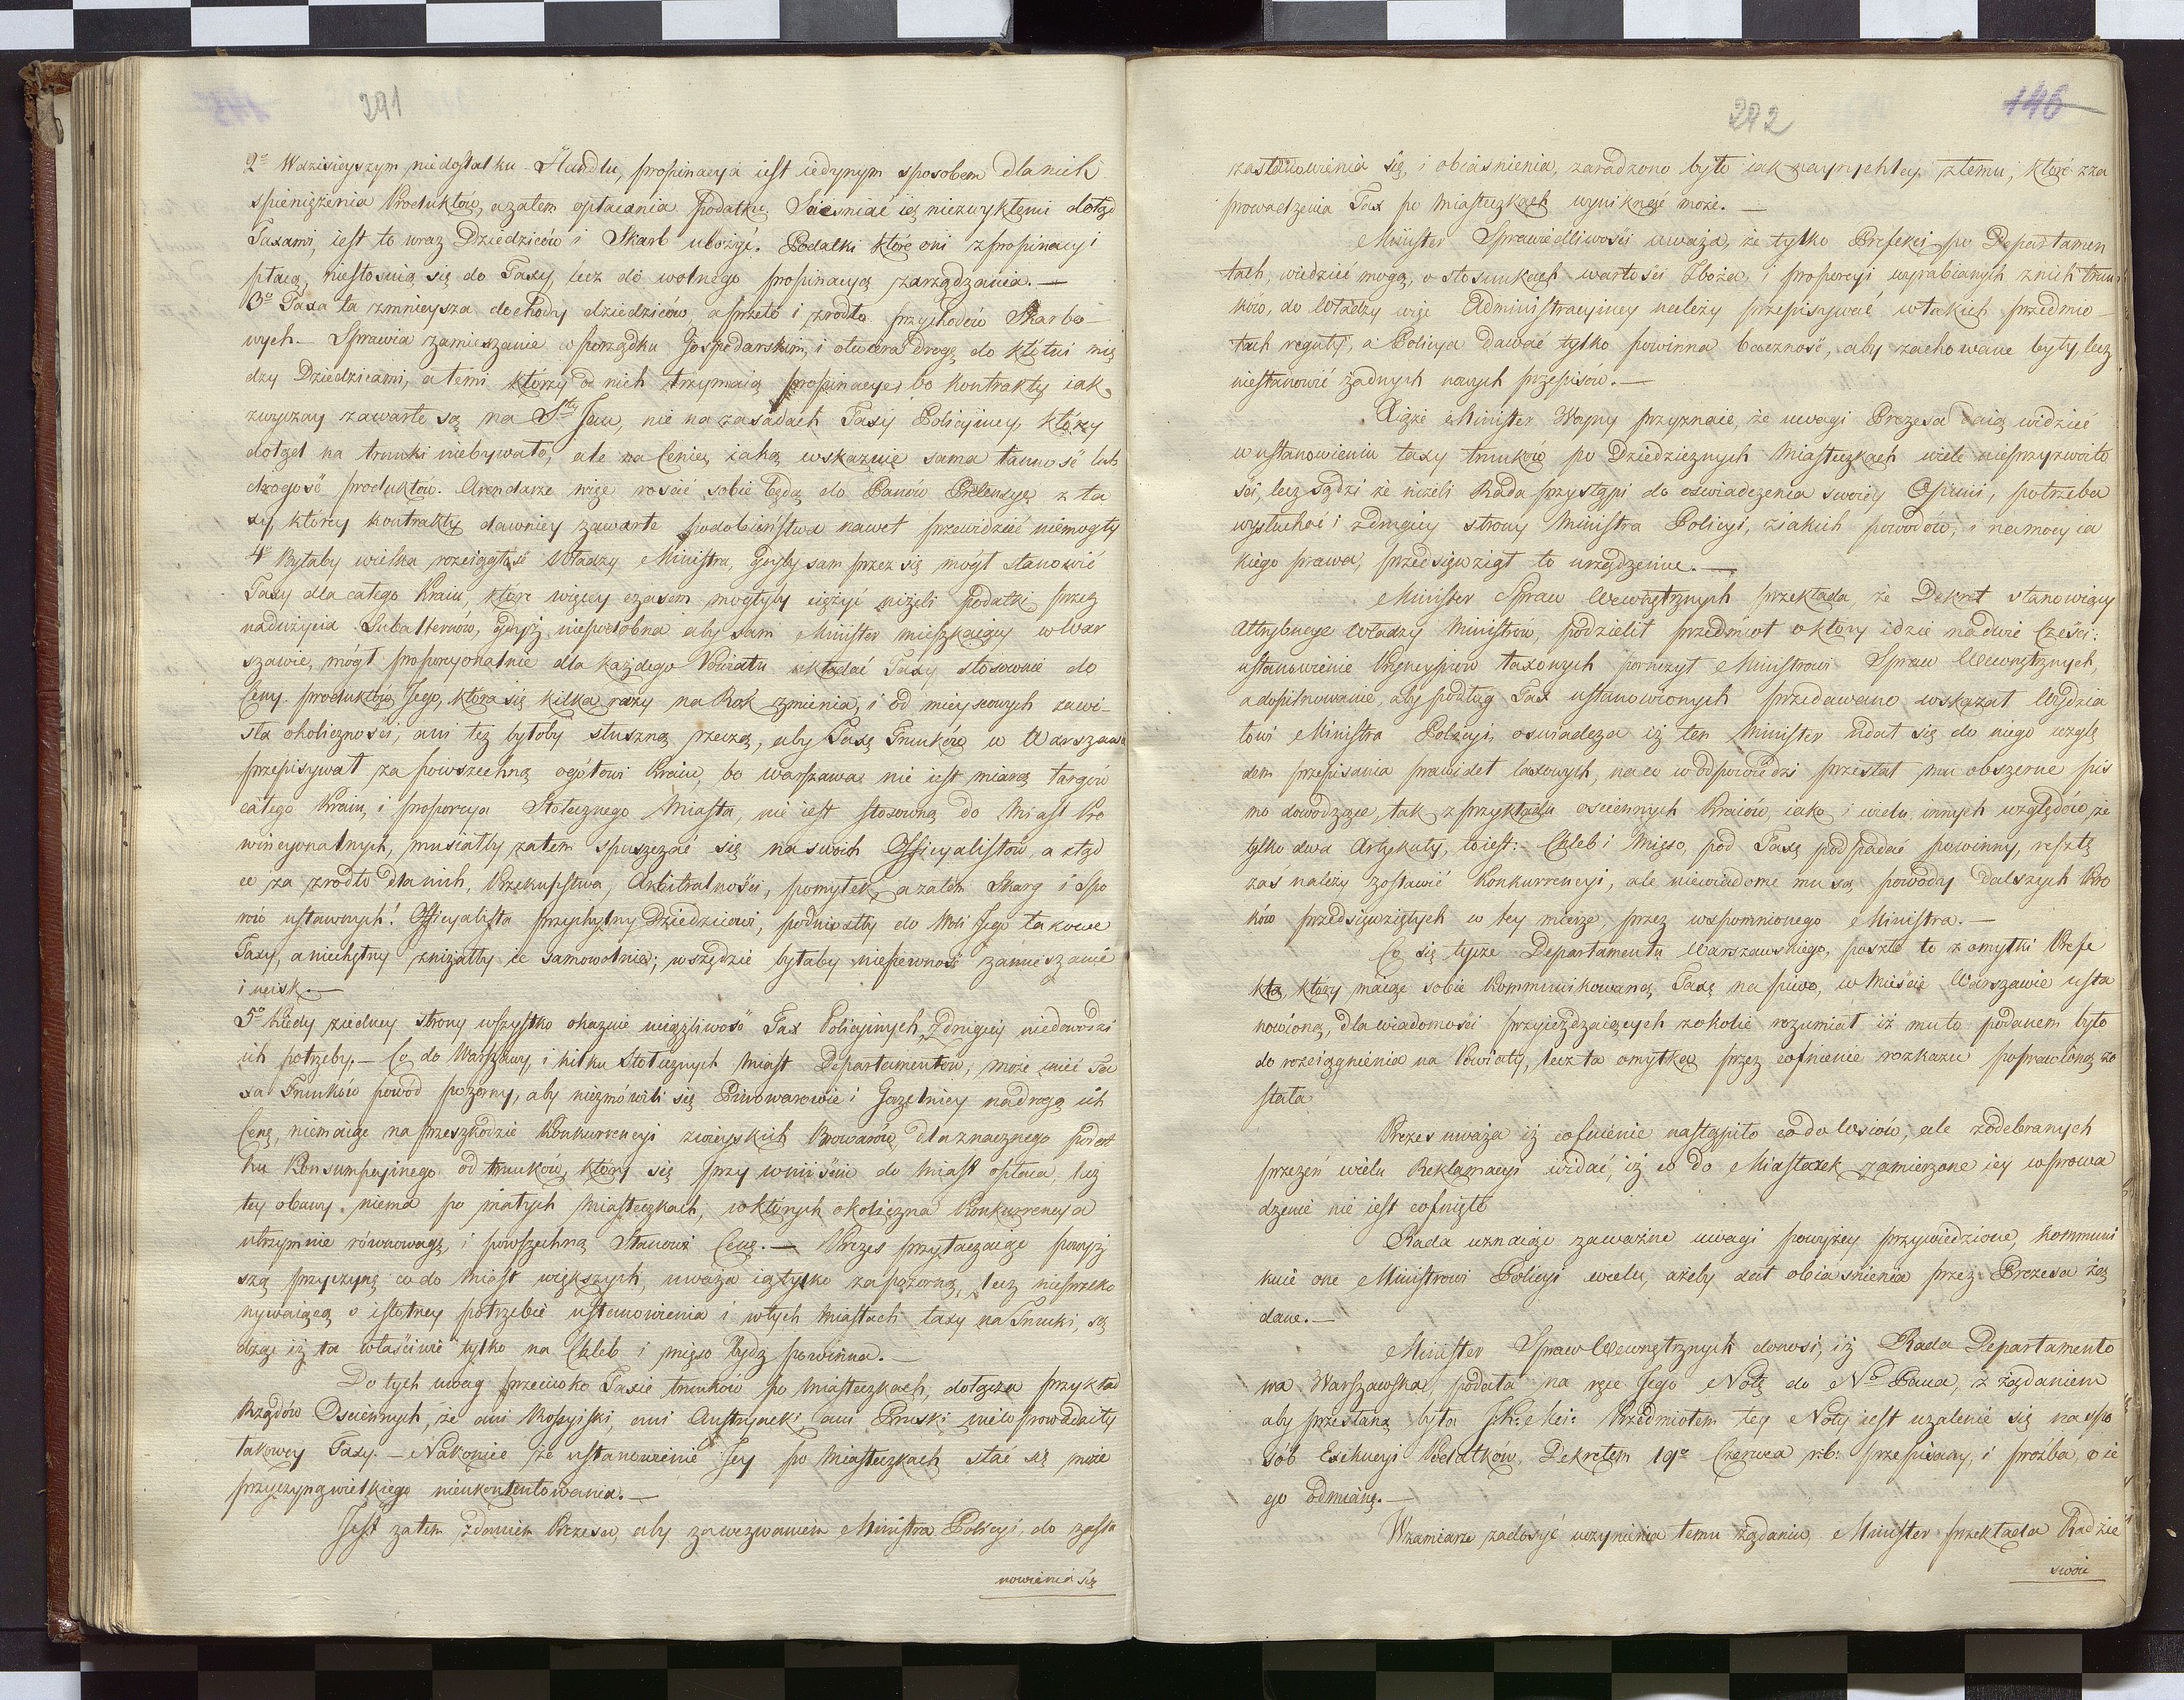 291
2o Wdzisieyszym niedostatku Handlu, propinacya iest iedynym sposobem dla nich
spieniężenia Produktów, a zatem opłacania Podatku. Scieśniać ią niezwykłemi dotąd
Taxami, iest to wraz Dziedziców i Skarb ubożyć. Podatki które oni z propinacyi
płacą, niestosuią się do Taxy, lecz do wolnego propinacyą zarządzania. —
3o Taxa ta zmnieysza dochody dziedziców, a przeto i zrodło przychodów Skarbo-
wych. — Sprawia zamieszanie w porządku Gospodarskim, i otwiera drogę do kłótni mię
dzy Dziedzicami, a temi którzy od nich trzymaią propinacye, bo kontrakty iak
zwyczay zawarte są na Sty Jan, nie na zasadach Taxy Policyiney, którey
dotąd na trunki niebywało, ale na Cenie, iaką wskazuie sama tanność lub
drogość produktów. Arendarze więc rościć sobie będą do Panów Pretensye z ta
xy, którey kontrakty dawniey zawarte podobieństwa nawet przewidzieć niemogły
4o Byłaby wielka rozciągłość Władzy Ministra, gdyby sam przez się mógł stanowić
Taxy dla całego Kraiu, które więcey czasem mogłyby ciężyć niżeli podatki przez
nadużycia Subalternów, gdyż niepodobna aby sam Minister mieszkaiący w War
szawie, mógł proporcyonalnie dla każdego Powiatu układać Taxy stosownie do
Ceny produktów Jego, która się kilka razy na Rok zmienia, i od mieyscowych zawi-
sła okoliczności, ani też byłoby słuszną rzeczą, aby Taxę Trunków w Warszawie
przepisywał za powszechną ogółowi Kraiu, bo warszawa nie iest miarą targów
całego Kraiu, i proporcya Stołecznego Miasta, nie iest stosowną do Miast Pro
wincyonalnych, musiałby zatem spuszczać się na swoich Officyalistów, a ztąd
ce za zrodło dla nich, Przekupstwa, Arbitralności, pomyłek, a zatem Skarg i Spo
rów ustawnych! Officyalista przychylny Dziedzicowi, podniosłby do Woli Jego takowe
Taxy, a niechętny zniżałby ie samowolnie; wszędzie byłaby niepewność zamieszanie
i ucisk. —
5o Kiedy ziedney strony wszystko okazuie uciążliwość Tax Policyinych, z drugiey niedowodzi
ich potrzeby. — Co do Warszawy, i kilku Stołecznych Miast Departamentów, może mieć Ta
xa Trunków powód pozorny, aby niezmówili się Piwowarowie i Gorzelnicy na drogą ich
Cenę, niemaiąc na przeszkodzie Konkurrencyi zwieyskich Browarów, dla znacznego podat
ku Konsumpcyinego od trunków, który się przy wniściu do miast opłaca, lecz
tey obawy niema po małych Miasteczkach, w których okoliczna Konkurrencya
utrzymuie równowagę, i powszechną Stanowi Cenę. — Prezes przytaczaiąc powyż
szą przyczynę co do miast większych, uważa ią tylko za pozorną, lecz nieprzeko
nywaiącą o istotney potrzebie ustanowienia i wtych Miastach taxy na Trunki, są
dząc iż ta właściwie tylko na Chleb i mięso bydź powinna. —
Do tych uwag przeciwko Taxie trunków po Miasteczkach, dołącza przykład
Rządów Ościennych, że ani Rossyiski, ani Austryacki ani Pruski niewprowadziły
takowey Taxy. — Nakoniec że ustanowienie Jey po Miasteczkach stać się może
przyczyną wielkiego nieukontentowania. —
Jest zatem zdaniem Prezesa, aby za wezwaniem Ministra Policyi, do zasta
nowienia się
292
146
zastanowienia się, i obiaśnienia, zaradzono było iak nayrychley złemu, które zza
prowadzenia Tax po Miasteczkach wyniknąć może. —
Minister Sprawiedliwości uważa, że tylko Prefekci po Departamen
tach, wiedzieć mogą, o stosunkach wartości Zboża, i proporcyi wyrabianych z nich trun
ków, do Władzy więc Administracyiney należy przepisywać w takich przedmio
tach reguły, a Policya dawać tylko powinna baczność, aby zachowane były, lecz
niestanowić żadnych nowych przepisów. —
Xiąże Minister Woyny przyznaie, że uwagi Prezesa daią widzieć
w ustanowieniu taxy trunków po Dziedzicznych Miasteczkach wiele nieprzyzwoito
ści, lecz sądzi że niżeli Rada przystąpi do oświadczenia swoiey Opinii, potrzeba
wysłuchać i z drugiey strony Ministra Policyi, z iakich powodów, i na mocy ia
kiego prawa, przedsięwziął to urządzenie. —
Minister Spraw Wewnętrznych przekłada, że Dekret stanowiący
Attrybucye Władzy Ministrów, podzielił przedmiot o który idzie na dwie Części:
ustanowienie Pryncypiów taxowych poruczył Ministrowi Spraw Wewnętrznych,
a dopilnowanie, aby podług Tax ustanowionych przedawano wskazał Wydzia
łowi Ministra Policyi, oświadcza iż ten Minister udał się do niego wzglę
dem przepisania prawideł taxowych, na co w odpowiedzi przesłał mu obszerne pis
mo dowodzące, tak z przykładu ościennych Kraiów, iako i wielu innych względów, że
tylko dwa Artykuły, to iest: Chleb i Mięso, pod Taxę podpadać powinny, resztę
zaś należy zostawić Konkurrencyi, ale niewiadome mu są powody dalszych Kro
ków przedsięwziętych w tey mierze, przez wspomnionego Ministra. —
Co się tycze Departamentu Warszawskiego, poszło to z omyłki Prefe
kta, który maiąc sobie Kommunikowaną Taxę na piwo, w Mieście Warszawie usta
nowioną, dla wiadomości przyieżdzaiących z okolic rozumiał iż mu to podanem było
do rozciągnienia na Powiaty, lecz ta omyłka przez cofnienie rozkazu poprawioną zo
stała
Prezes uważa iż cofnienie nastąpiło co do Wsiów, ale z odebranych
przezeń wielu Reklamacyi widać, iż co do Miasteczek zamierzone iey wprowa
dzenie nie iest cofnięte
Rada uznaiąc za ważne uwagi powyżey przywiedzione, kommuni
kuie one Ministrowi Policyi w celu, ażeby dał obiaśnienia przez Prezesa żą
dane. —
Minister Spraw Wewnętrznych donosi, iż Rada Departamento
wa Warszawska, podała na ręce Jego Notę do No Pana, z żądaniem
aby przesłaną była Przedmiotem tey Noty iest użalenie się na spo
sób Exekucyi Podatków, Dekretem 19o Czerwca r:b: przepisany, i prośba, o ie
go odmianę. —
Wzamiarze zadosyć uczynienia temu żądaniu, Minister przekłada Radzie
swoie